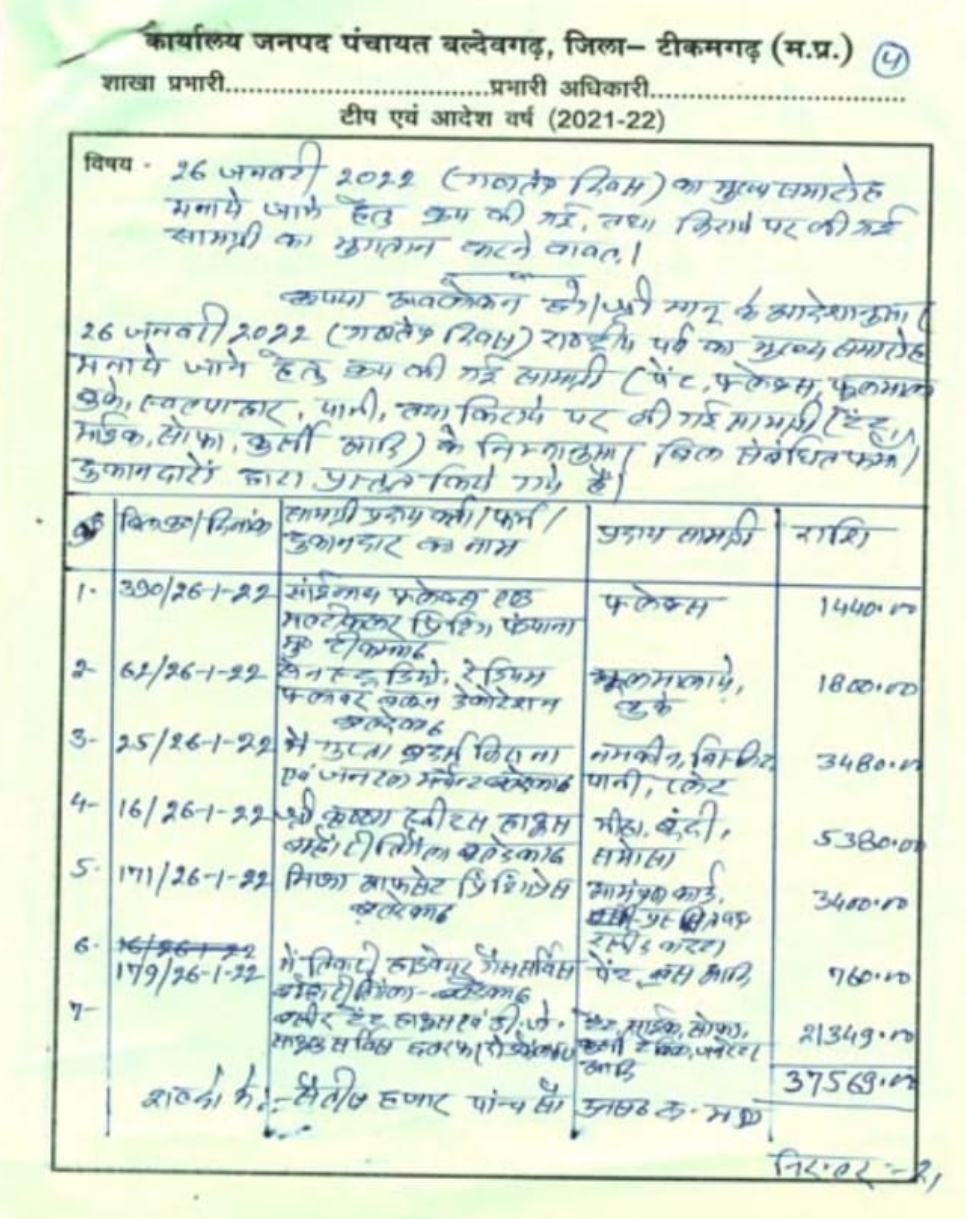 कार्यालय जनपद पंचायत बल्देवगढ़, जिला– टीकमगढ़ (म.प्र.) 4
शाखा प्रभारी..............................प्रभारी अधिकारी..............................
टीप एवं आदेश वर्ष (2021-22)
विषय - 26 जनवरी 2022 (गणतंत्र दिवस) का मुख्य समारोह
मनाये जाने हेतु क्रय की गई, तथा किराये पर ली गई
सामग्री का भुगतान करने वावत्।
कृपया अवलोकन हो। के आदेशानुसार
26 जनवरी 2022 (गणतंत्र दिवस) राष्ट्रीय पर्व का मुख्य समारोह
मनाये जाने हेतु क्रय की गई सामग्री (पेंट, फ्लेक्स, फूलमाला
बुके, स्वल्पाहार, पानी, तथा किराये पर ली गई सामग्री (टेंट,
माईक, सोफा, कुर्सी आदि) के निम्नानुसार बिल संबंधित फर्म/
दुकानदारों द्वारा प्रस्तुत किये गये है।
बिल क्र०/दिनांक सामग्री प्रदाय कर्ता/फर्म/ प्रदाय सामग्री राशि
दुकानदार का नाम
1. 390/26-1-22 सांईनाथ फ्लेक्स एण्ड फ्लेक्स 1440.00
मल्टीकलर प्रिंटिंग
टीकमगढ़
2- 62/26-1-22 रेडियम फूलमालाये, 1800.00
फ्लावर डेकोरेशन बुके
बल्देवगढ़
3- 25/26-1-22 मे गुप्ता ब्रदर्स किराना नमकीन, बिस्कीट 3480.00
एवं जनरल मर्चेन्ट बल्देवगढ़ पानी,
4- 16/26-1-22 श्री कृष्णा स्वीटस हाऊस मीठा, बूंदी, 5380.00
बल्देवगढ़ समोसा
5- 171/26-1-22 आफसेट प्रिंटिंग प्रेस आमंत्रण कार्ड, 3400.00
बल्देवगढ़
6- 16/26-1-22
179/26-1-22 मे तिवारी हार्डवेयर पेंट, आदि 760.00
बल्देवगढ़
7- टेंट हाऊस एवं डी.जे. टेंट, माईक, सोफा, 21349.00
साउण्ड सर्विस कुर्सी जनरेटर
आदि
37569.00
शब्दो मे:- सैतीस हजार पांच सौ उनसठ रू. मात्र
निरंतर:-2,